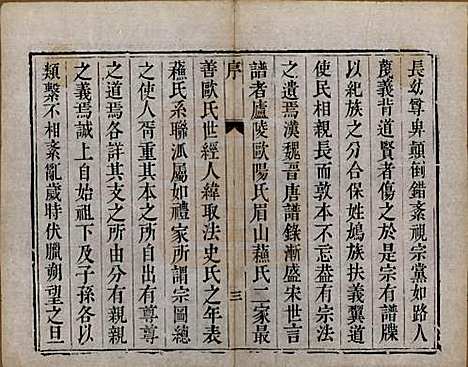 長幼尊卑顛倒錯紊視宗黨如路人
蔑義背道賢者傷之於是宗有譜牒
以紀族之分合保姓鳩族扶義翼道
使民相親長而敦本不忘盡有宗法
之遺焉漢魏晉唐譜錄漸盛宋世言
譜者廬陵歐陽氏眉山蘓氏二家最
序
三
善歐氏世經人緯取法史氏之年表
蘓氏系聯泒屬如禮家所謂宗圖總
之使人胥重其本之所自出有尊尊
之道焉各詳其支之所由分有親親
之義焉誠上自始祖下及子孫各以
類繫不相紊亂歲時伏臘朔望之旦